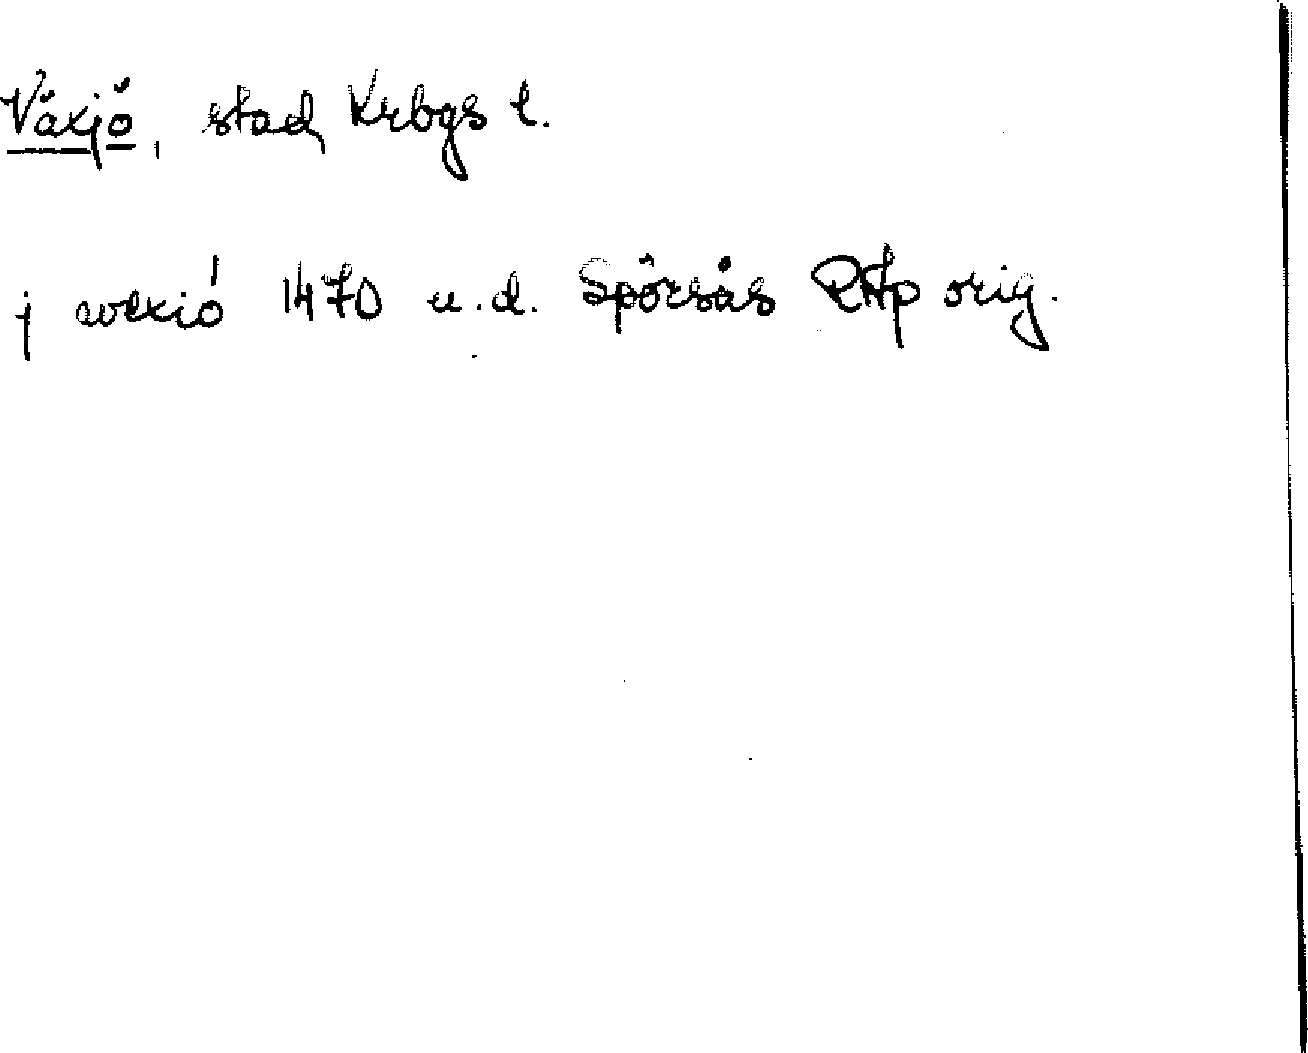 Växjö, stad Krbgs l.
j wexió 1470 u.d. Spörsås RAp orig.